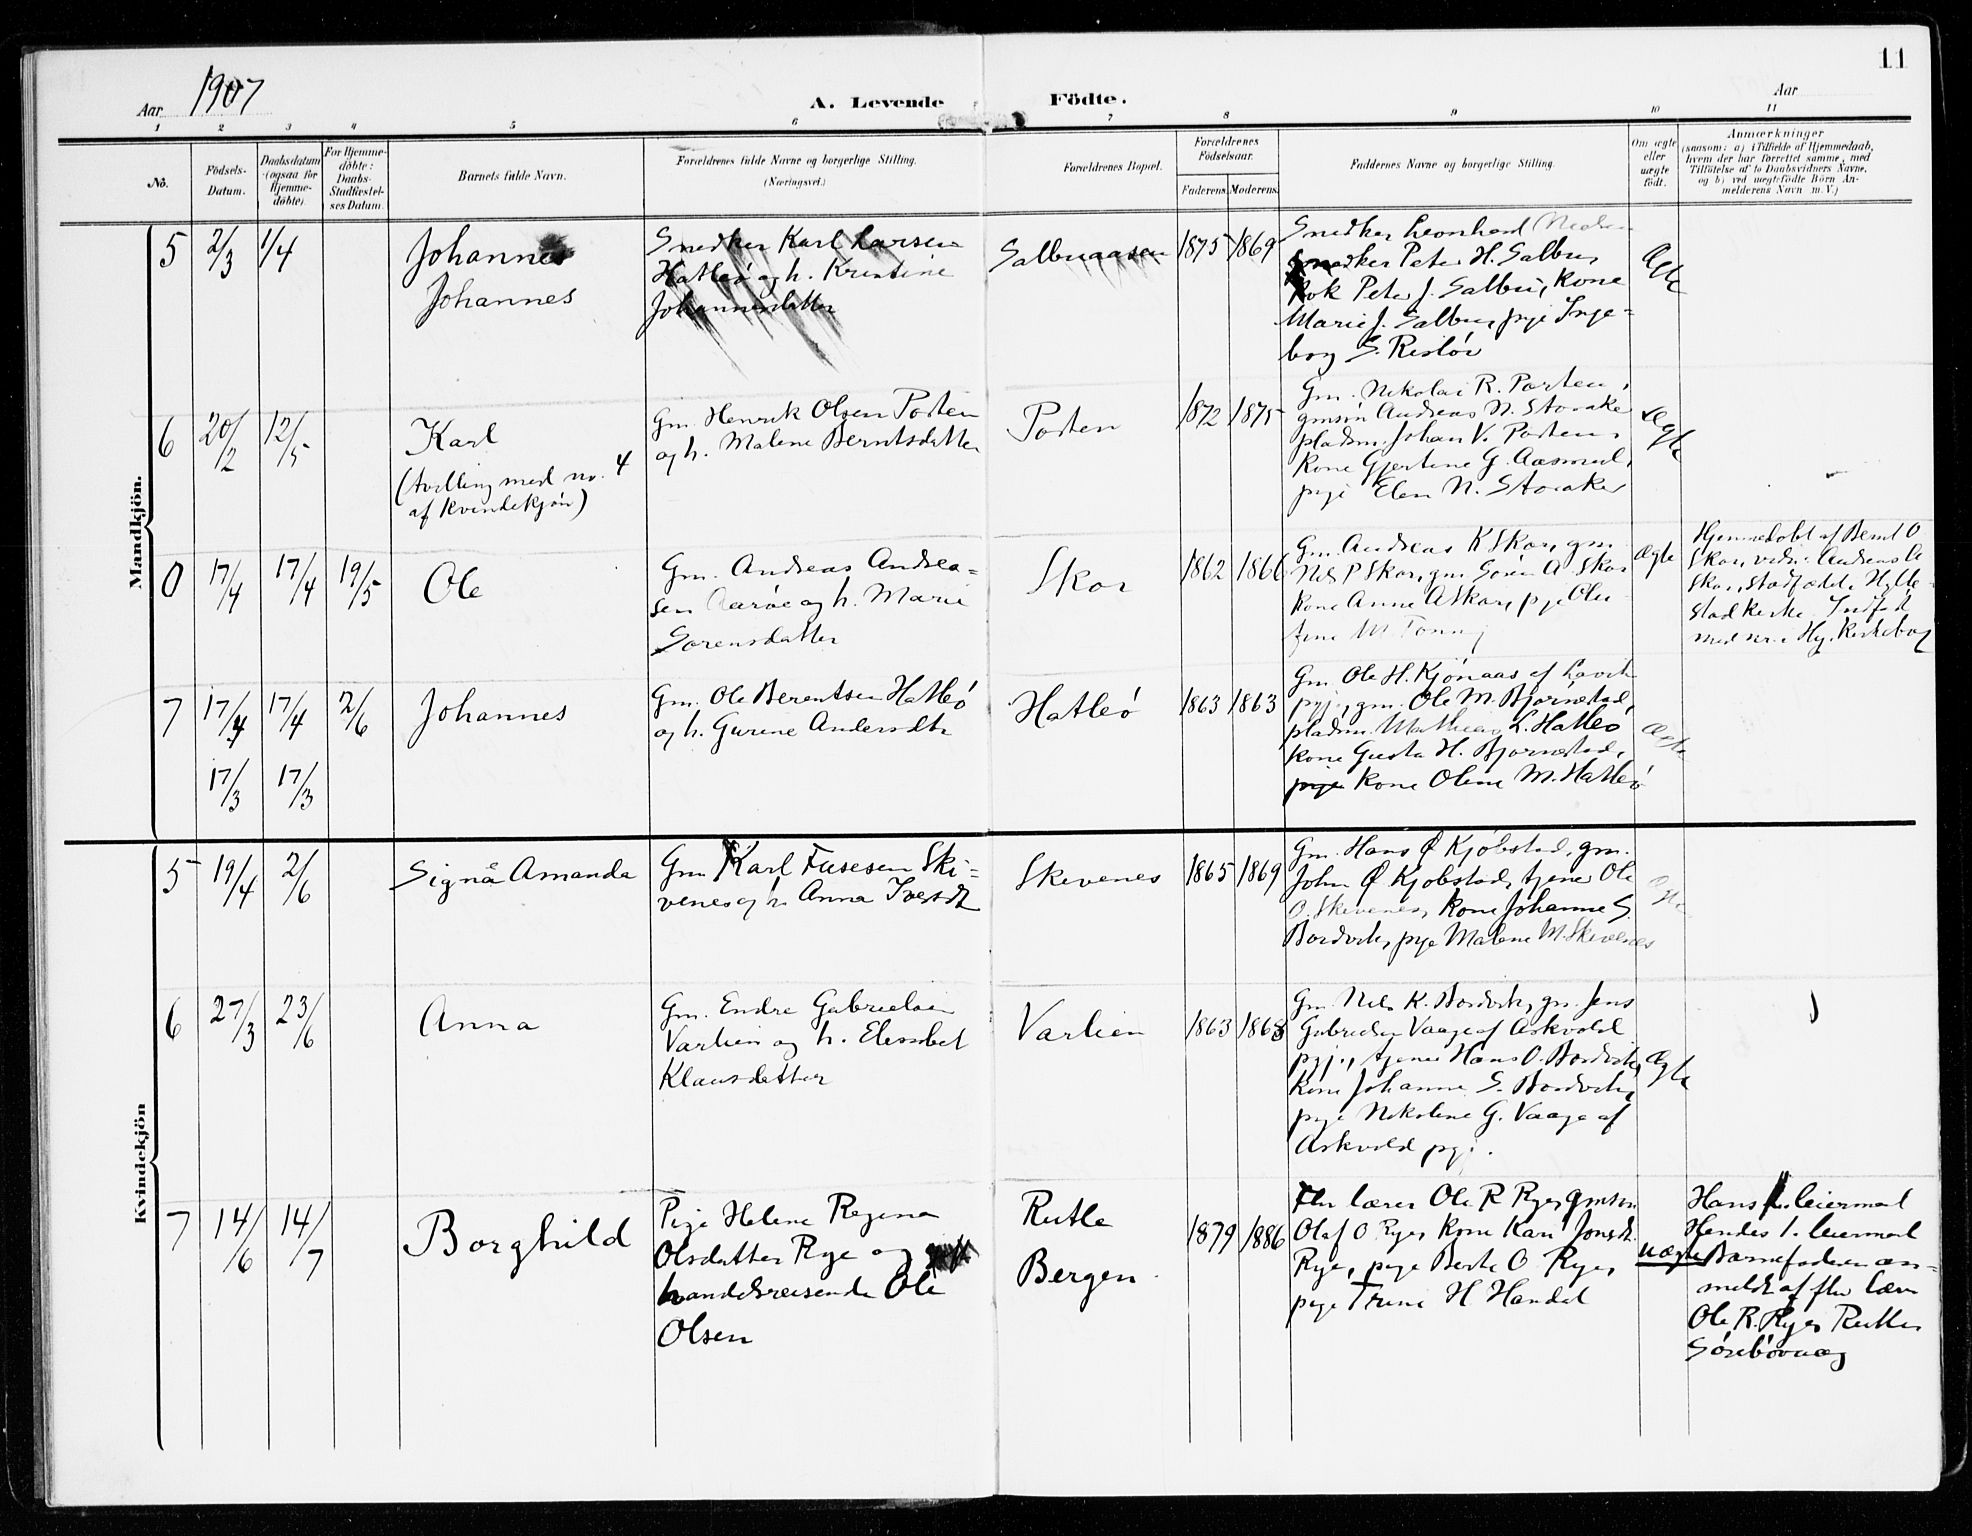 11
Aar 1907
A. Levende Födte.
Aar
1 2 3 4 5 6 7 8 9 10 11
No.
Födsels-
Datum.
Daabsdatum
(ogsaa for
Hjemme-
döbte).
For Hjemme-
döbte:
Daabs-
Stadfæstel-
ses Datum.
Barnets fulde Navn.
Forældrenes fulde Navne og borgerlige Stilling.
(Næringsvei.)
Forældrenes Bopæl.
Forældrenes
Födselsaar.
Faderens. Moderens.
Faddernes Navne og borgerlige Stilling.
Om ægte
eller
uægte
födt.
Anmærkninger
(saasom: a) i Tilfælde af Hjemmedaab,
hvem der har forrettet samme, med
Tilföielse af to Daabsvidners Navne,
og b) ved uægtefödte Börn An-
melderens Navn m. V.)
Mandkjön.
5 2/3 1/4
Johannes
Johannes
Snedker Karl Larsen
Hatleö og h. Kristine
Johannesdatter
Salbuaasen
1875 1869
Snedker Leonhard
Snedker Peter H. Salbu,
Kok Peter J. Salbu, kone
Marie J. Salbu, pige Inge-
borg S. Risløv
Ægte
6 20/2 12/5
Karl
(tvilling med no. 4
af kvindekjøn)
Gm. Henrik Olsen Porten
og h. Malene Berntsdatter
Porten
1872 1875
Gm. Nikolai R. Porten,
gmsøn Andreas N. Storaker
pladsm. Johan V. Porten,
kone Gjertine G. Aasmul,
pige Elen N. Storaker
Ægte
0 17/4 17/4 19/5
Ole
Gm. Andreas Andrea-
sen Aarøe og h. Marie
Sorensdatter
Skor
1862 1866
Gm. Andreas K Skor, gm
Nils P Skor, gm Søren A Skor
kone Anne A Skor, pige Oline
Ægte
Hjemmedøbt af Bernt O
Skor, vidn. Andreas A
Skor, stadfæstet i Hylle-
stad kirke. Indført
med nr. i Hy. Kirkebog
7 17/4 17/4 2/6
17/3 17/3
Johannes
Gm. Ole Berentsen Hatleö
og h. Gurine Andersdtr
Hatleö
1863 1863
Gm. Ole H. Kjønaas af Lavik
pgj., gm. Ole M. Bjørnstad,
pladsm. Mathias L. Hatleö
kone Gusta H. Bjørnestad,
pige kone Oline M. Hatleö
Ægte
Kvindekjön
5 19/4 2/6
Signe Amanda
Gm Karl Fusesen Ski-
venes og h. Anna Iversdt
Skevenes
1865 1869
Gm. Hans Ø Kjøbstad, gm.
John Ø Kjøbstad, tjener Ole
O. Skevenes, kone Johanne S.
Bordvik, pige Malene M. Skevenes
Ægte
6 27/3 23/6
Anna
Gm. Endre Gabrielsen
Varlien og h. Elessebet
Klausdatter
Varlien
1863 1868
Gm. Nils K. Bordvik, gm. Jens
Gabrielsen Vaage af Askvold
pgj., tjener Hans O. Bordvik,
kone Johanne S. Bordvik,
pige Nikoline G. Vaage af
Askvold pgj.
Ægte
7 14/6 14/7
Borghild
Pige Helene Regina
Olsdatter Rye og
handelsreisende Ole
Olsen
Rutle
Bergen
1879 1886
Fhv lærer Ole R Rye, gmsøn
Olaf O Rye, kone Kari Jonsdt.
Rye, pige Berte O Rye,
pige Trine H Handal
uægte
Hans 1. leiermaal
Hendes 1. leiermaal
Barnefaderen an-
meldt af fhv lærer
Ole R. Rye, Rutle,
Sørebøvaag